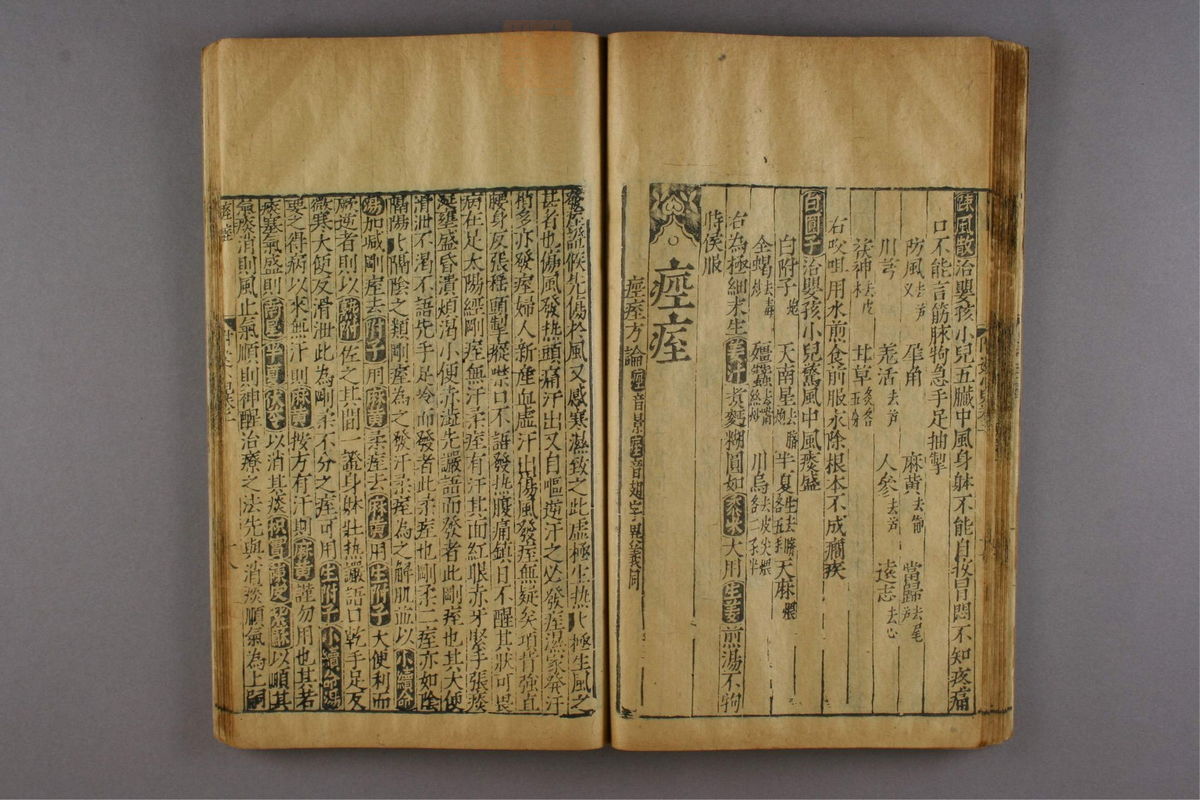 陳風散治嬰孩小兒五臟中風身躰不能自收冐悶不知疼痛
口不能言筋脉拘急手足抽掣
防風去芦 犀角 麻黄去節 當歸去尾
川芎 羗活去芦 人參去芦 遠志去心
茯神去皮木 甘草炙各五分
右㕮咀用水煎食前服永除根本不成癇疾
百圓子治嬰孩小兒驚風中風痰盛
白附子 天南星 半夏 天麻煨
全蝎去毒炒 殭蠶去嘴 川烏去皮尖煨各二予半
右為極細末生姜汁煮麪糊圓如黍米大用生姜煎湯不拘
時候服
痙痓
痙痓方論痙音景痓音翅字異義同
發痓證候先傷於風又感寒濕致之此虚極生热热極生風之
甚者也傷風發热頭痛汗出又自嘔逆汗之必發痓濕家發汗
稍多亦發痓婦人新産血虚汗出傷風發痓無疑矣項背強直
腰身反張搖頭掣瘲噤口不語發热腹痛鎮日不醒其狀可畏
病在足太陽經剛痓無汗柔痓有汗其面紅眼赤牙堅手張痰
涎壅盛昏潰煩渴小便赤澁先讝語而發者此剛痓也其大便
滑泄不渴不語先手足冷而發者此柔痓也剛柔二痓亦如陰
陽陽热陽陰之類剛痓為之發汗柔痓為之解肌並以小續命
湯加减剛痓去附子用麻黄柔痓去麻黄用生附子大便利而
厥逆者則以麻附佐之其間一證身躰壯热讝語口乾手足反
微寒大便反滑泄此為剛柔不分之痓可用生附子小續命湯
要之得病以來無汗則麻黄按方有汗則麻黄謹勿用也其若
痰塞氣盛則南星半夏茯苓以消其痰枳實陳皮紫蘇以順其
氣痰消則風止氣順則神醒治療之法先與消痰順氣為上嗣